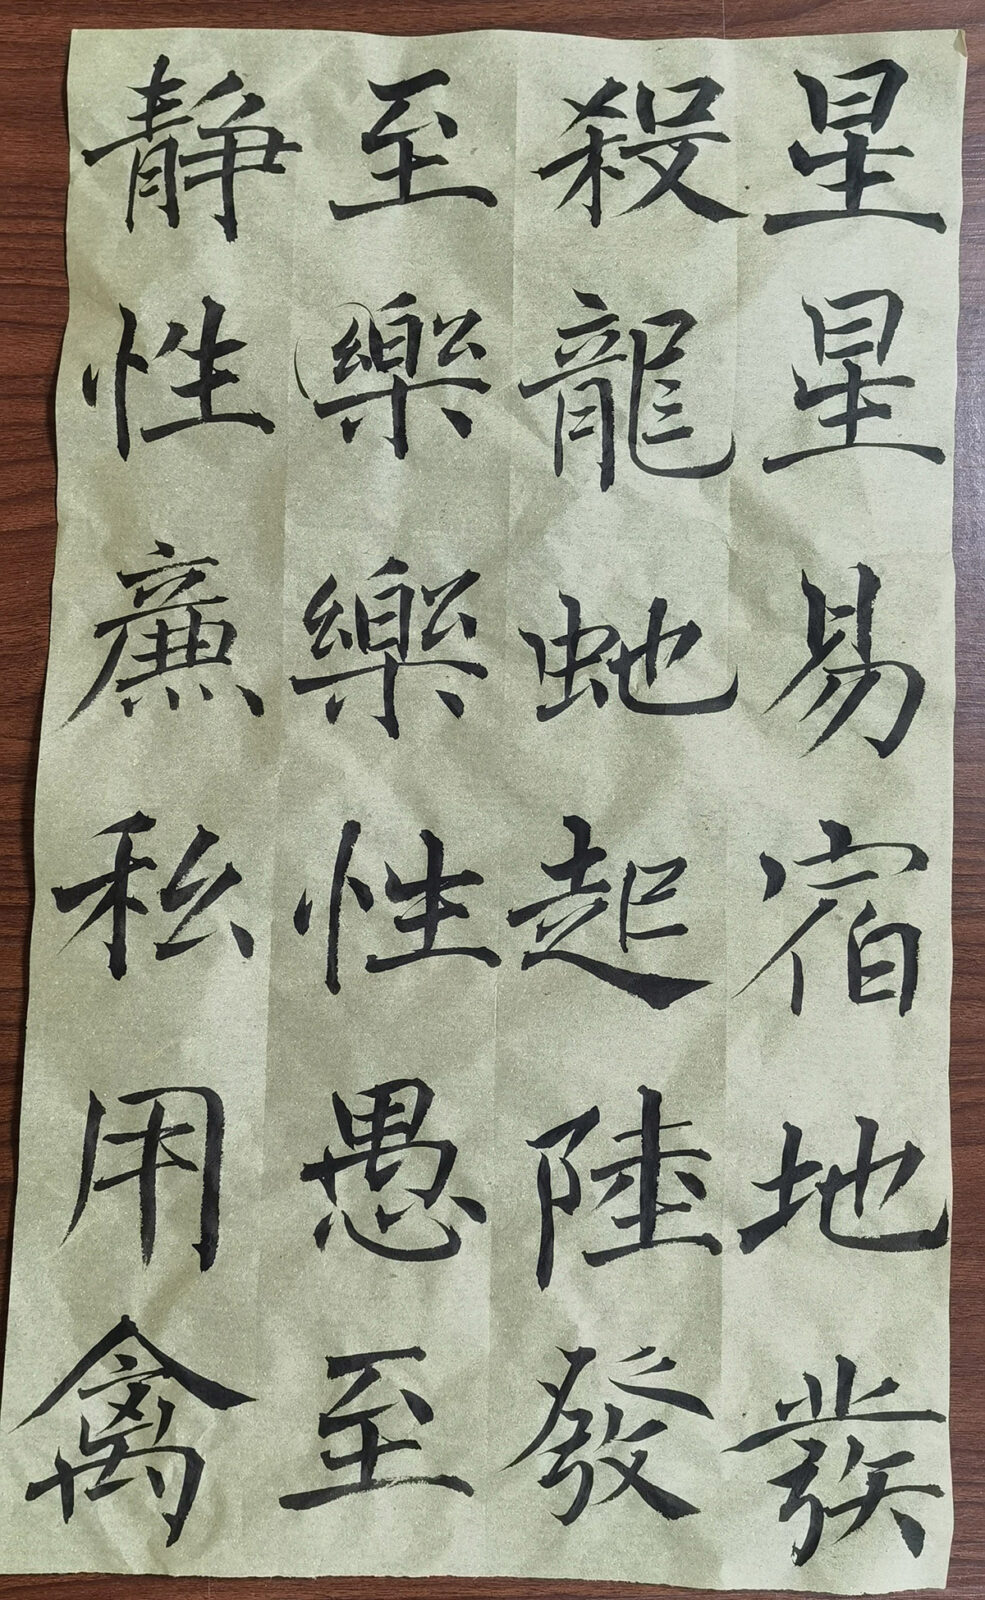 星星易宿地發
殺龍虵起陸發
至樂樂性愚至
静性廉私用禽